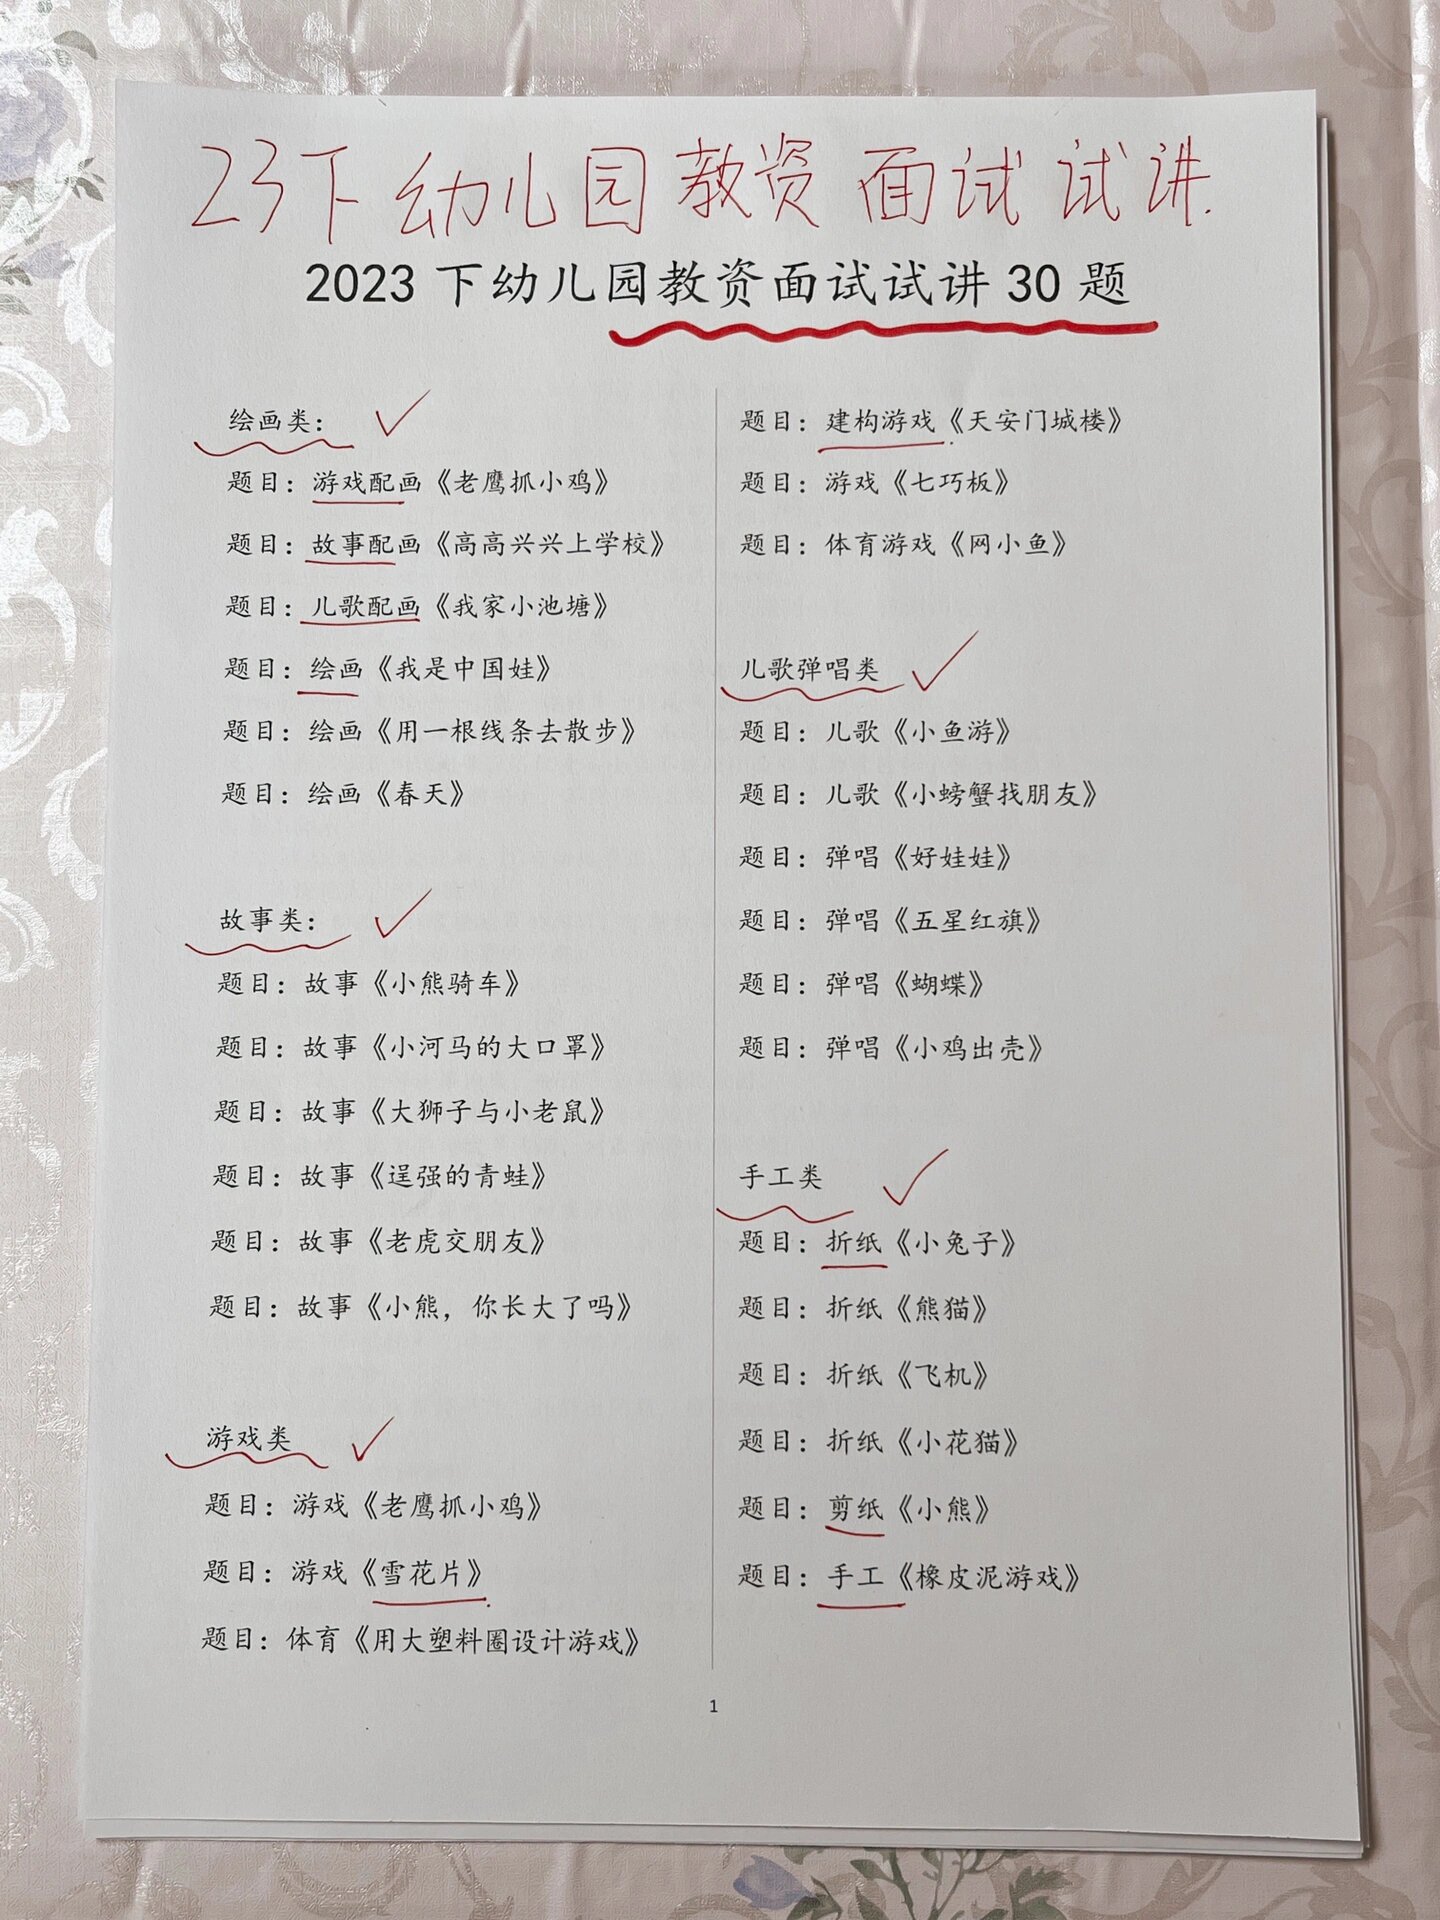 23下幼儿园教资面试试讲.
2023下幼儿园教资面试试讲30题
绘画类：
题目：游戏配画《老鹰抓小鸡》
题目：故事配画《高高兴兴上学校》
题目：儿歌配画《我家小池塘》
题目：绘画《我是中国娃》
题目：绘画《用一根线条去散步》
题目：绘画《春天》
故事类：
题目：故事《小熊骑车》
题目：故事《小河马的大口罩》
题目：故事《大狮子与小老鼠》
题目：故事《逞强的青蛙》
题目：故事《老虎交朋友》
题目：故事《小熊，你长大了吗》
游戏类
题目：游戏《老鹰抓小鸡》
题目：游戏《雪花片》
题目：体育《用大塑料圈设计游戏》
题目：建构游戏《天安门城楼》
题目：游戏《七巧板》
题目：体育游戏《网小鱼》
儿歌弹唱类
题目：儿歌《小鱼游》
题目：儿歌《小螃蟹找朋友》
题目：弹唱《好娃娃》
题目：弹唱《五星红旗》
题目：弹唱《蝴蝶》
题目：弹唱《小鸡出壳》
手工类
题目：折纸《小兔子》
题目：折纸《熊猫》
题目：折纸《飞机》
题目：折纸《小花猫》
题目：剪纸《小熊》
题目：手工《橡皮泥游戏》
1